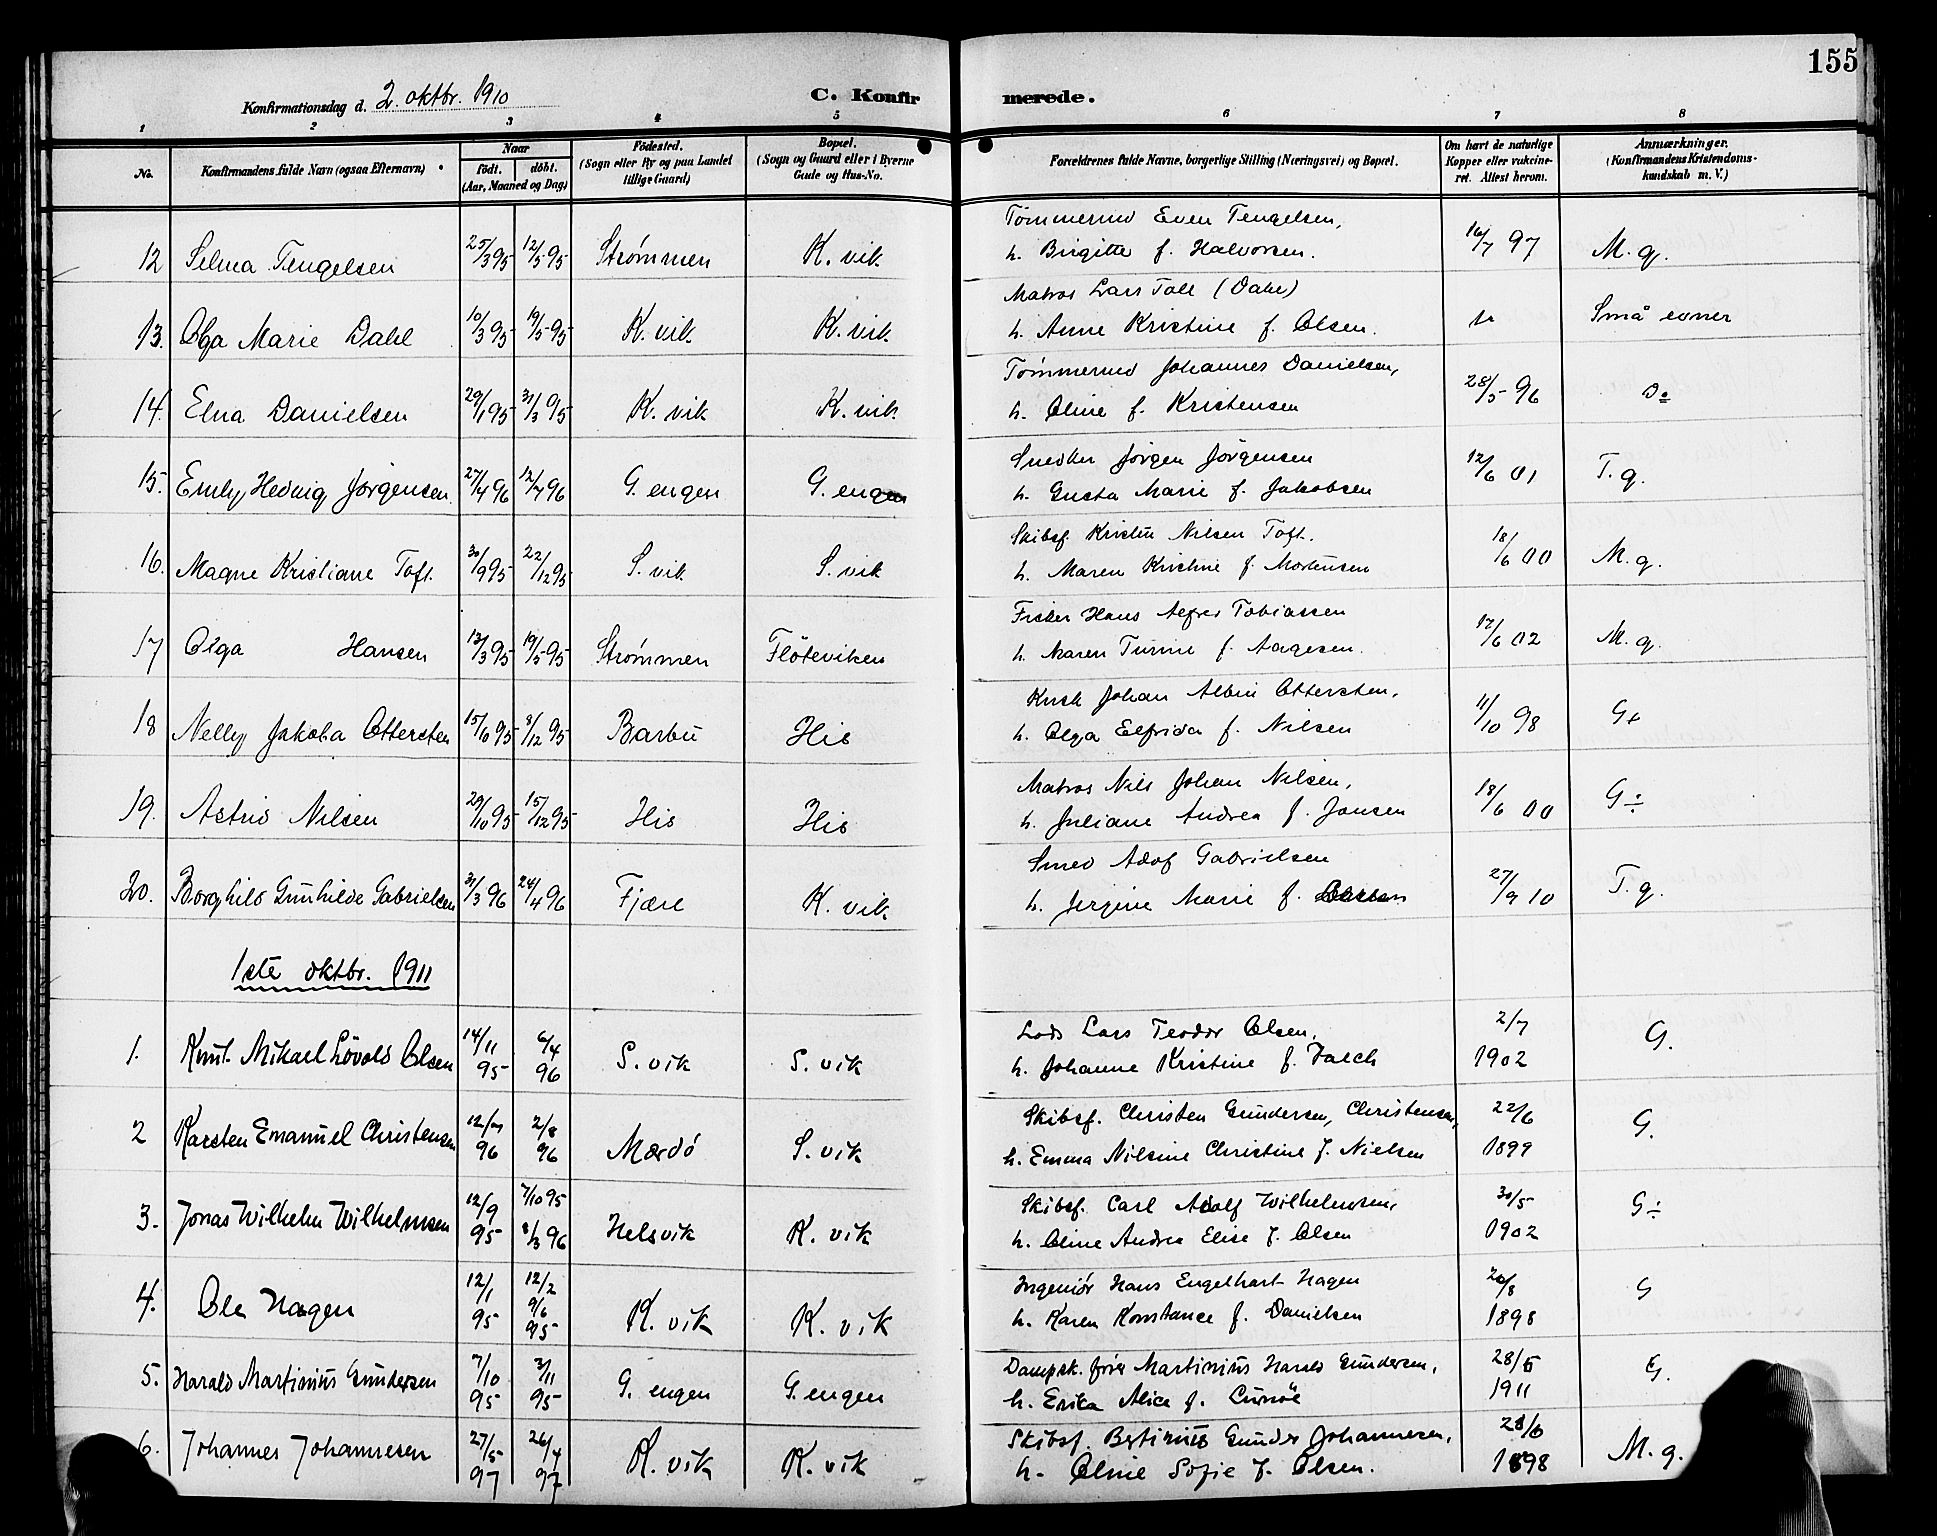 155
Konfirmationsdag d. 2. oktbr. 1910
C. Konfirmerede.
1 2 3 4 5 6 7 8
No. Konfirmandens fulde Navn (ogsaa Efternavn) Naar født. døbt. (Aar, Maaned og Dag) Fødested. (Sogn eller By og paa Landet tillige Gaard) Bopæl. (Sogn og Gaard eller i Byerne Gade og Hus-No. Forældrenes fulde Navne, borgerlige Stilling (Næringsvei) og Bopæl. Om havt de naturlige Kopper eller vaksineret. Attest herom. Anmærkninger. (Konfirmandens Kristendomskundskab m. V.)
12 Selma Tengelsen 25/3 95 12/5 95 Strømmen K. vik Tømmermd Even Tengelsen, h. Birgitte f. Halvorsen. 16/7 97 M. g.
13. Olga Marie Dahl 10/3 95 19/5 95 K. vik K. vik Matros Lars Tall (Dahl) h. Anne Kristine f. Olsen. Små evner
14. Elna Danielsen 29/1 95 31/3 95 K. vik K. vik Tømmermd Johannes Danielsen, h. Oline f. Kristensen 28/5 96 Do
15. Emly Hedvig Jørgensen 27/4 96 12/7 96 G. engen G. engen Snedker Jørgen Jørgensen h. Gusta Marie f. Jakobsen 12/6 01 T. g.
16. Magne Kristiane Toft. 30/9 95 22/12 95 S. vik S. vik Skibsf. Kristen Nilsen Toft. h. Maren Kristine f. Mortensen 18/6 00 M. g.
17 Olga Hansen 13/3 95 19/5 95 Strømmen Flöteviken Fisker Hans Alfred Tobiassen h. Maren Turine f. Aagesen. 17/6 02 M. g.
18 Nelly Jakoba Ottersten 15/10 95 8/12 95 Barbu His Kusk Johan Albin Ottersten, h. Olga Elfrida f. Nilsen 11/10 98 G+
19. Astrid Nilsen 29/10 95 15/12 95 His His Matros Nils Johan Nilsen, h. Juliane Andrea f. Jansen 18/6 00 G÷
20. Borghild Gunhilde Gabrielsen 31/3 96 24/4 96 Fjære K. vik Smed Adof Gabrielsen h. Jergine Marie f. 27/9 10 T. g.
1ste oktbr. 1911
1. Knut Mikael Lövold Olsen 14/11 95 6/4 96 S. vik S. vik Lods Lars Teodor Olsen, h. Johanne Kristine f. Falch 2/7 1902 G.
2 Karsten Emanuel Christensen 12/7 96 2/8 96 Mærdö S. vik Skibsf. Christen Gundersen, Christensen, h. Emma Nilsine Christine f. Nielsen 22/6 1899 G.
3. Jonas Wilhelm Wilhelmsen 12/9 95 7/10 95 8/3 96 Helsvik K. vik Skibsf. Carl Adolf Wilhelmsen, h. Oline Andrea Elise f. Olsen 30/5 1902 G÷
4. Ole Hagen 12/1 95 12/2 9/6 95 K. vik K. vik Ingeniør Hans Engelhart Hagen h. Karen Konstance f. Danielsen 20/8 1898 G
5. Harald Martinius Gundersen 7/10 95 3/11 95 G. engen G. engen Dampsk. fører Martinius Harald Gundersen, h. Erika Alice f. 28/5 1911 G.
6. Johannes Johannesen 27/5 97 26/7 97 K. vik K. vik Skibsf. Bertinius Gunder Johannesen, h. Oline Sofie f. Olsen. 28/6 1898 M. g.